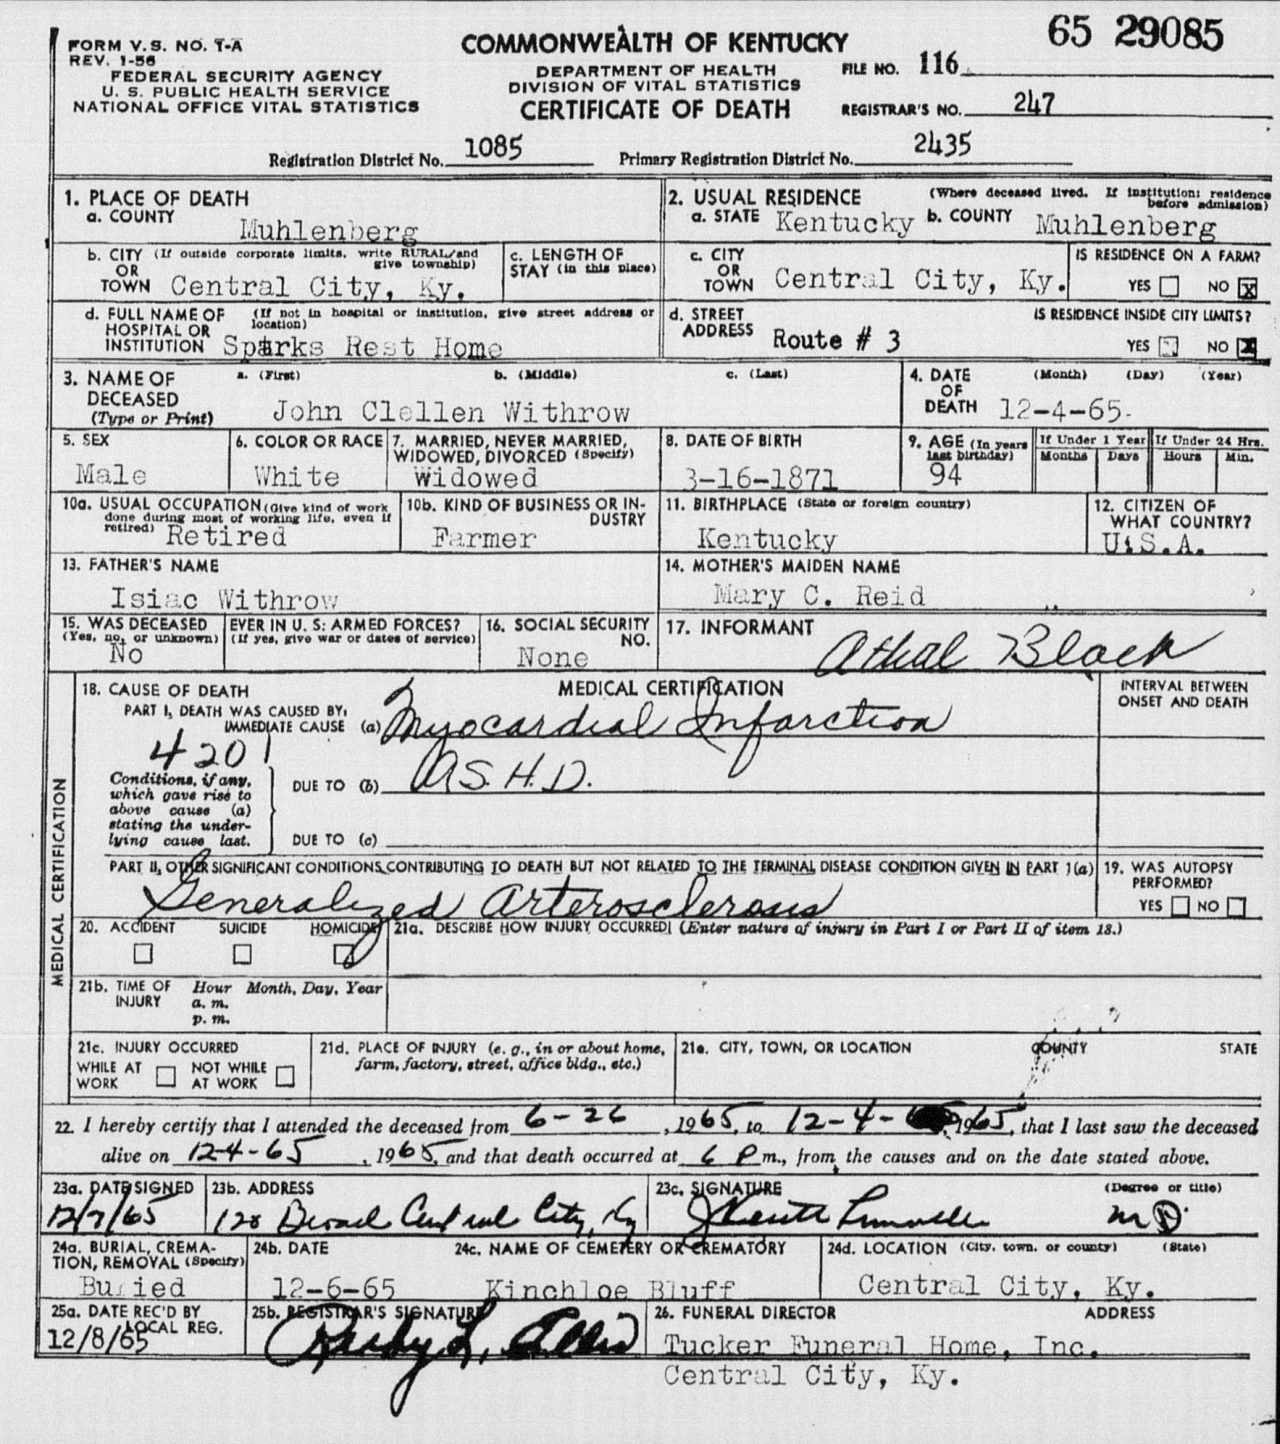 65 29085
FORM V.S. NO. 1-A
REV. 1-56
FEDERAL SECURITY AGENCY
U. S. PUBLIC HEALTH SERVICE
NATIONAL OFFICE VITAL STATISTICS
COMMONWEALTH OF KENTUCKY
DEPARTMENT OF HEALTH
DIVISION OF VITAL STATISTICS
CERTIFICATE OF DEATH
FILE NO. 116
REGISTRAR'S NO. 247
Registration District No. 1085 Primary Registration District No. 2435
1. PLACE OF DEATH
a. COUNTY
Muhlenberg
2. USUAL RESIDENCE (Where deceased lived. If institution: residence before admission)
a. STATE Kentucky b. COUNTY Muhlenberg
b. CITY (If outside corporate limits, write RURAL and give township)
OR
TOWN Central City, Ky.
c. LENGTH OF STAY (in this place)
c. CITY
OR
TOWN Central City, Ky.
IS RESIDENCE ON A FARM?
YES NO X
d. FULL NAME OF (If not in hospital or institution, give street address or location)
HOSPITAL OR
INSTITUTION Sparks Rest Home
d. STREET
ADDRESS Route # 3
IS RESIDENCE INSIDE CITY LIMITS?
YES NO X
3. NAME OF DECEASED
(Type or Print)
a. (First) b. (Middle) c. (Last)
John Clellen Withrow
4. DATE OF DEATH (Month) (Day) (Year)
12-4-65.
5. SEX
Male
6. COLOR OR RACE
White
7. MARRIED, NEVER MARRIED, WIDOWED, DIVORCED (Specify)
Widowed
8. DATE OF BIRTH
3-16-1871
9. AGE (In years last birthday)
94
If Under 1 Year
Months Days
If Under 24 Hrs.
Hours Min.
10a. USUAL OCCUPATION (Give kind of work done during most of working life, even if retired)
Retired
10b. KIND OF BUSINESS OR INDUSTRY
Farmer
11. BIRTHPLACE (State or foreign country)
Kentucky
12. CITIZEN OF WHAT COUNTRY?
U.S.A.
13. FATHER'S NAME
Isiac Withrow
14. MOTHER'S MAIDEN NAME
Mary C. Reid
15. WAS DECEASED EVER IN U. S. ARMED FORCES?
(Yes, no, or unknown) (If yes, give war or dates of service)
No
16. SOCIAL SECURITY NO.
None
17. INFORMANT
Athal Black
MEDICAL CERTIFICATION
18. CAUSE OF DEATH
MEDICAL CERTIFICATION
INTERVAL BETWEEN ONSET AND DEATH
PART I, DEATH WAS CAUSED BY:
IMMEDIATE CAUSE (a) Myocardial Infarction
4201
Conditions, if any, which gave rise to above cause (a) stating the underlying cause last.
DUE TO (b) A.S.H.D.
DUE TO (c)
PART II, OTHER SIGNIFICANT CONDITIONS CONTRIBUTING TO DEATH BUT NOT RELATED TO THE TERMINAL DISEASE CONDITION GIVEN IN PART 1(a)
Generalized Arterosclerosis
19. WAS AUTOPSY PERFORMED?
YES NO
20. ACCIDENT SUICIDE HOMICIDE
21a. DESCRIBE HOW INJURY OCCURRED! (Enter nature of injury in Part I or Part II of item 18.)
21b. TIME OF INJURY Hour Month, Day, Year
a. m.
p. m.
21c. INJURY OCCURRED
WHILE AT WORK NOT WHILE AT WORK
21d. PLACE OF INJURY (e. g., in or about home, farm, factory, street, office bldg., etc.)
21e. CITY, TOWN, OR LOCATION COUNTY STATE
22. I hereby certify that I attended the deceased from 6-26, 1965, to 12-4- 1965, that I last saw the deceased
alive on 12-4-65, 1965, and that death occurred at 6 P m., from the causes and on the date stated above.
23a. DATE SIGNED
12/7/65
23b. ADDRESS
128 Broad Central City, Ky
23c. SIGNATURE (Degree or title)
M D
24a. BURIAL, CREMATION, REMOVAL (Specify)
Buried
24b. DATE
12-6-65
24c. NAME OF CEMETERY OR CREMATORY
Kinchloe Bluff
24d. LOCATION (City, town, or county) (State)
Central City, Ky.
25a. DATE REC'D BY LOCAL REG.
12/8/65
25b. REGISTRAR'S SIGNATURE
26. FUNERAL DIRECTOR ADDRESS
Tucker Funeral Home, Inc.
Central City, Ky.